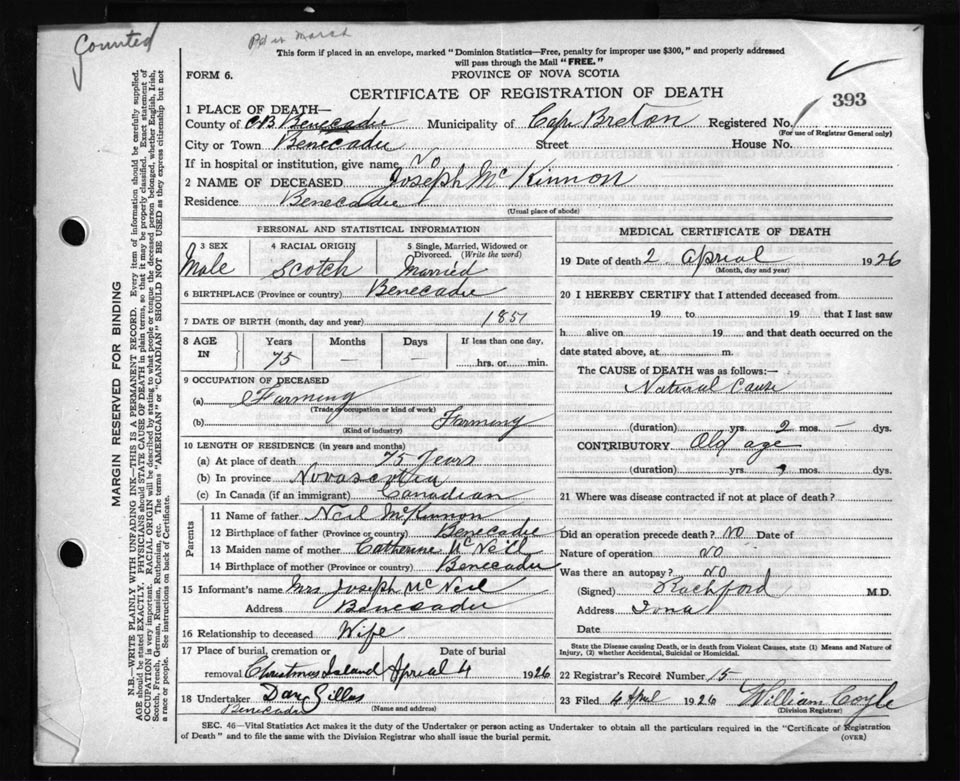 Counted
Marsh
This form if placed in an envelope, marked "Dominion Statistics—Free, penalty for improper use $300," and properly addressed
will pass through the Mail "FREE."
FORM 6.
PROVINCE OF NOVA SCOTIA
CERTIFICATE OF REGISTRATION OF DEATH
393
1 PLACE OF DEATH—
County of C.B. Benecadie Municipality of Cape Breton Registered No.
(For use of Registrar General only)
City or Town Benecadie Street House No.
If in hospital or institution, give name No
2 NAME OF DECEASED Joseph McKinnon
Residence Benecadie
(Usual place of abode)
PERSONAL AND STATISTICAL INFORMATION
3 SEX 4 RACIAL ORIGIN 5 Single, Married, Widowed or
Divorced. (Write the word)
Male Scotch Married
6 BIRTHPLACE (Province or country) Benecadie
7 DATE OF BIRTH (month, day and year) 1851
8 AGE IN Years Months Days If less than one day,
75 — — hrs. or min.
9 OCCUPATION OF DECEASED
(a) Farming
(Trade occupation or kind of work)
(b) Farming
(Kind of industry)
10 LENGTH OF RESIDENCE (in years and months)
(a) At place of death 75 Years
(b) In province Novascotia
(c) In Canada (if an immigrant) Canadian
Parents
11 Name of father Neil McKinnon
12 Birthplace of father (Province or country) Benecadie
13 Maiden name of mother Catherine McNeil
14 Birthplace of mother (Province or country) Benecadie
15 Informant's name Mrs Joseph McNeil
Address Benecadie
16 Relationship to deceased Wife
17 Place of burial, cremation or Date of burial
removal Christmas Island Aprial 4 1926
18 Undertaker Dan Gillus
Benecadie (Name and address)
MEDICAL CERTIFICATE OF DEATH
19 Date of death 2 Aprial 1926
(Month, day and year)
20 I HEREBY CERTIFY that I attended deceased from
19 to 19 that I last saw
h alive on 19 and that death occurred on the
date stated above, at m.
The CAUSE of DEATH was as follows:—
Natural Cause
(duration) yrs. 2 mos. — dys.
CONTRIBUTORY. Old age
(duration) yrs. mos. dys.
21 Where was disease contracted if not at place of death?
Did an operation precede death? NO Date of
Nature of operation NO
Was there an autopsy? NO
(Signed) Rachford M.D.
Address Iona
Date
State the Disease causing Death, or in death from Violent Causes, state (1) Means and Nature of
Injury, (2) whether Accidental, Suicidal or Homicidal.
22 Registrar's Record Number 15
23 Filed 4 April 1926 William Coyle
(Division Registrar)
SEC. 46—Vital Statistics Act makes it the duty of the Undertaker or person acting as Undertaker to obtain all the particulars required in the "Certificate of Registration
of Death" and to file the same with the Division Registrar who shall issue the burial permit.
(OVER)
MARGIN RESERVED FOR BINDING
N.B.—WRITE PLAINLY WITH UNFADING INK—THIS IS A PERMANENT RECORD. Every item of information should be carefully supplied.
AGE should be stated EXACTLY. PHYSICIANS should STATE CAUSE OF DEATH in plain terms, so that it may be properly classified. Exact statement of
OCCUPATION is very important. RACIAL ORIGIN will be described by stating to what people or tongue the deceased person belonged, whether English, Irish,
Scotch, French, German, Russian, Ruthenian, etc. The terms "AMERICAN" or "CANADIAN" SHOULD NOT BE USED as they express citizenship but not
a race or people. See instructions on back of Certificate.